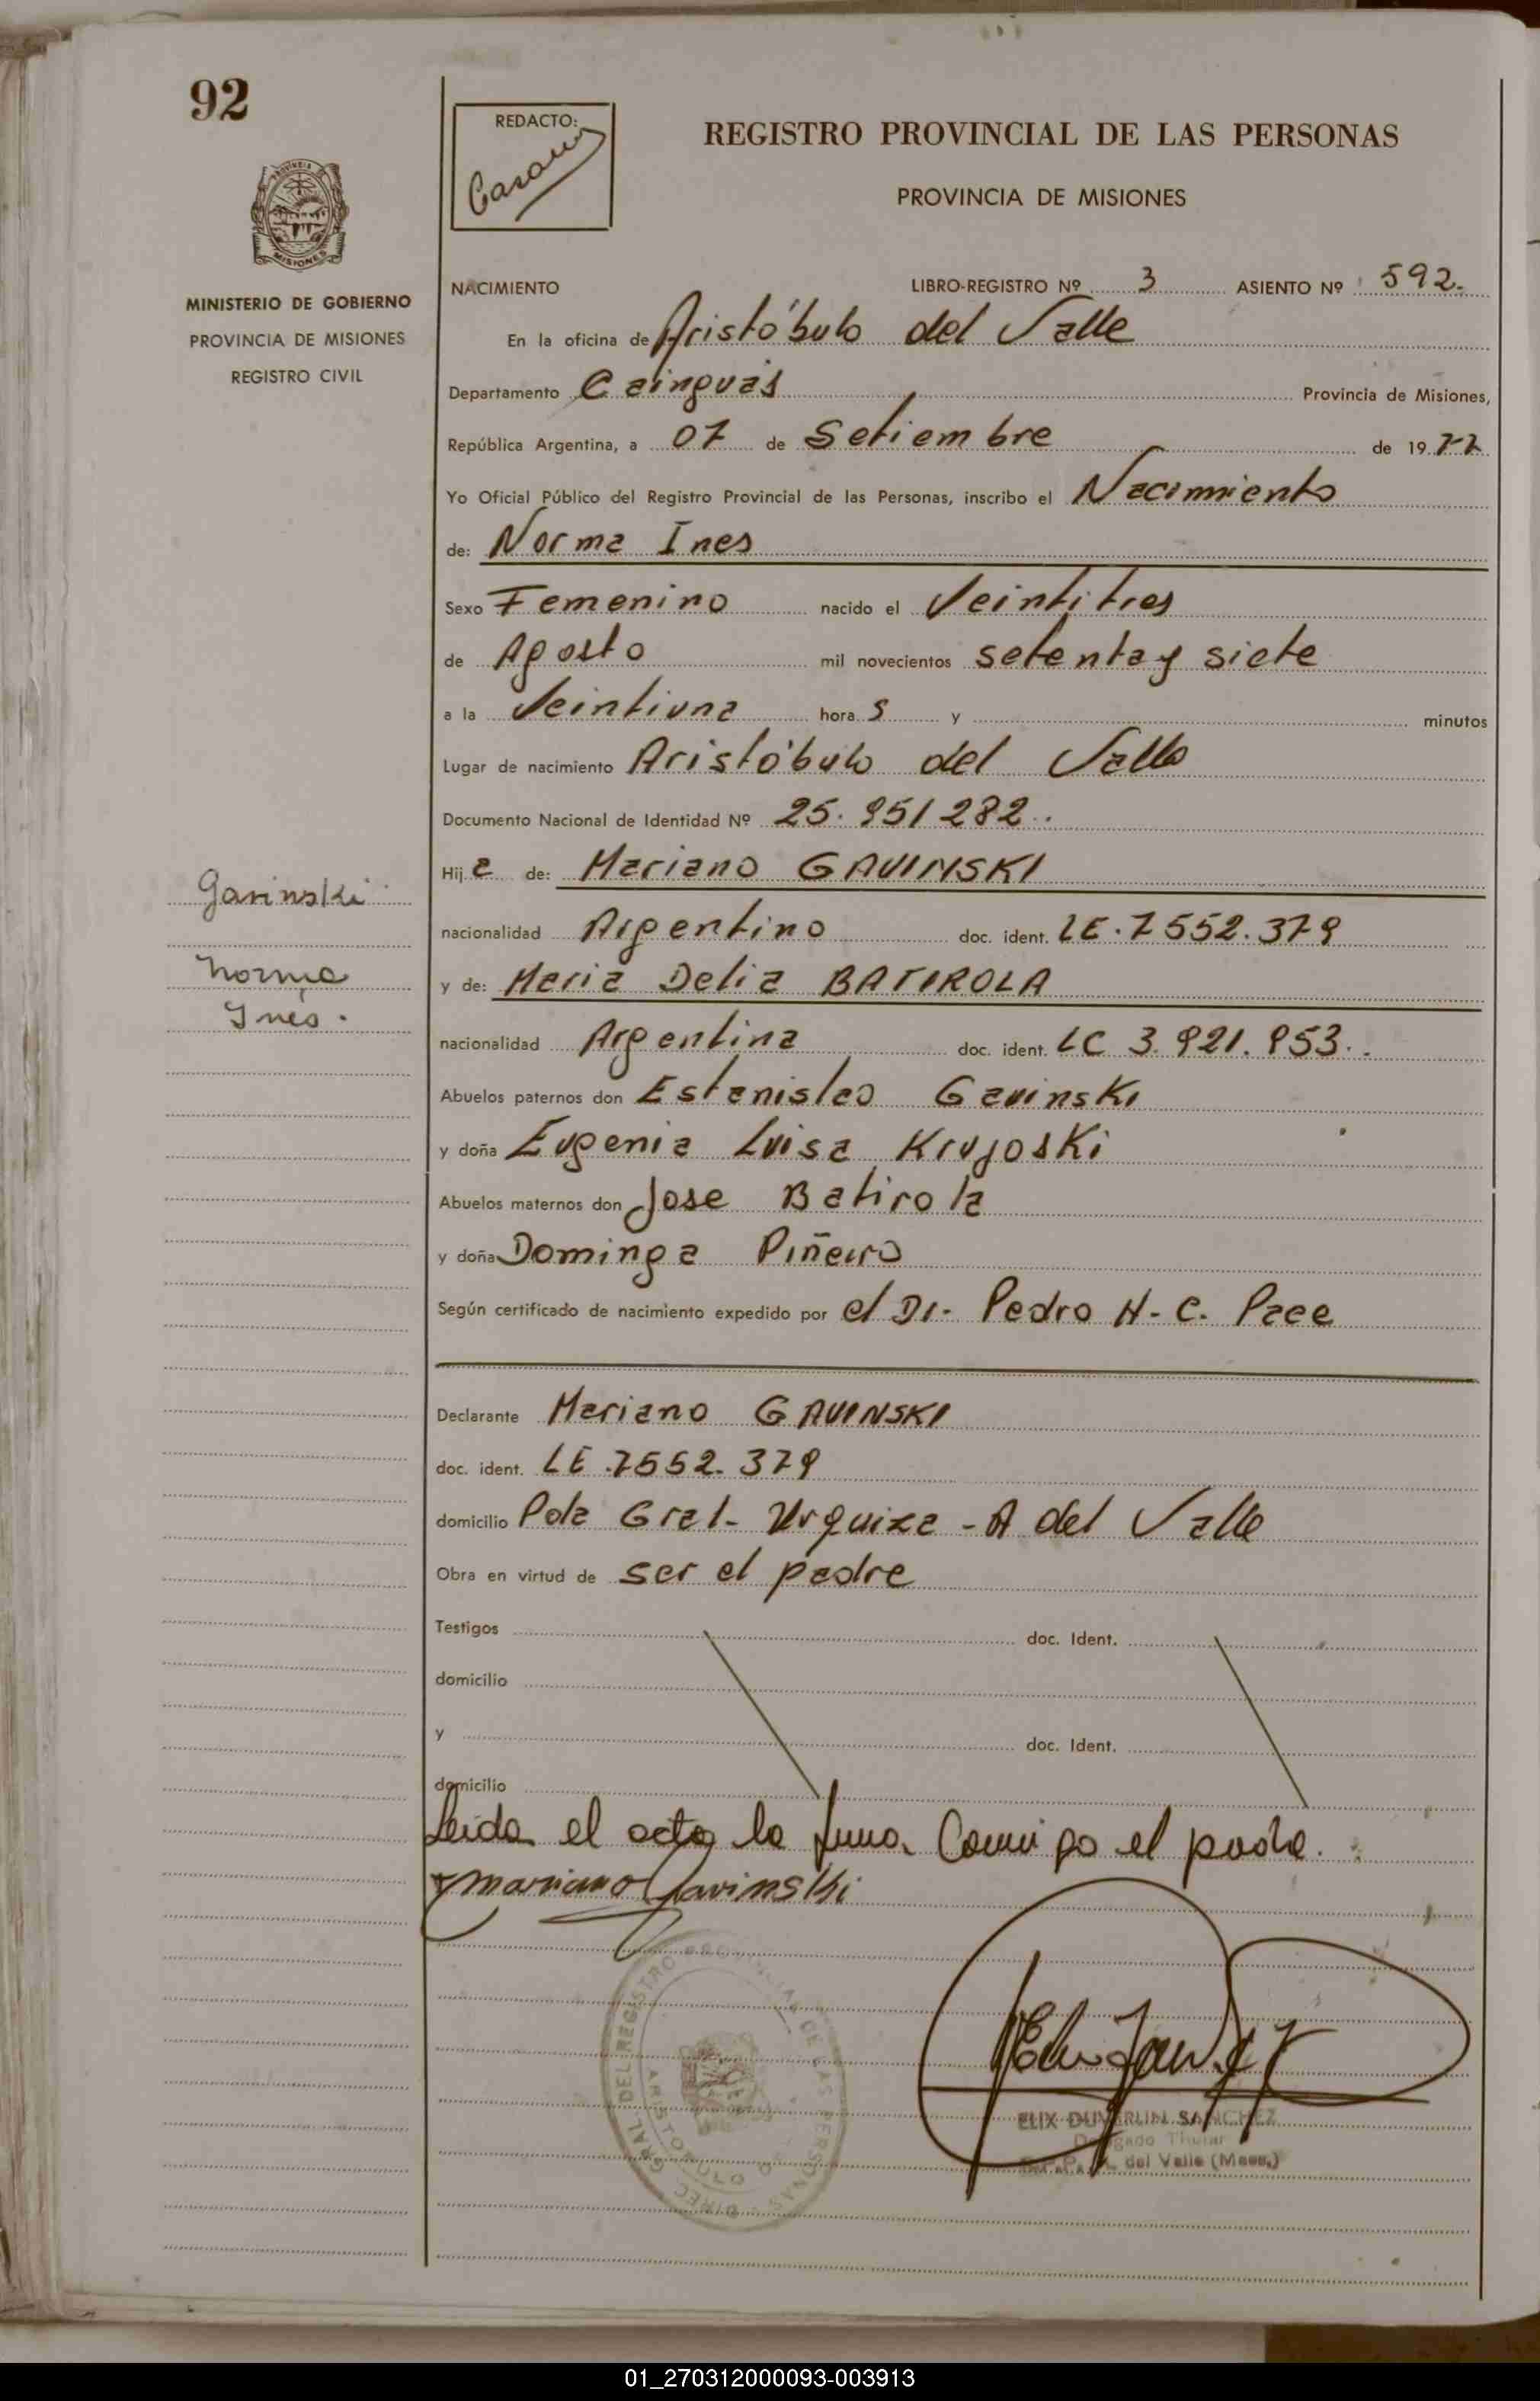 92
REDACTO:
REGISTRO PROVINCIAL DE LAS PERSONAS
PROVINCIA DE MISIONES
MISIONES
MINISTERIO DE GOBIERNO
PROVINCIA DE MISIONES
REGISTRO CIVIL
NACIMIENTO LIBRO-REGISTRO Nº 3 ASIENTO Nº 592.
En la oficina de Aristóbulo del Valle
Departamento Cainguás Provincia de Misiones,
República Argentina, a 07 de Setiembre de 1977
Yo Oficial Público del Registro Provincial de las Personas, inscribo el Nacimiento
de: Norma Ines
Sexo Femenino nacido el Veintitres
de Agosto mil novecientos setenta y siete
a la Veintiuna hora s y minutos
Lugar de nacimiento Aristóbulo del Valle
Documento Nacional de Identidad Nº 25.951282.
Hij a de: Mariano GAVINSKI
Gavinski
nacionalidad Argentino doc. ident. LE. 7552.379
Norma
y de: Maria Delia BATIROLA
Ines.
nacionalidad Argentina doc. ident. LC 3.921.953.
Abuelos paternos don Estanislao Gavinski
y doña Eugenia Luisa Krujoski
Abuelos maternos don Jose Batirola
y doña Dominga Piñeiro
Según certificado de nacimiento expedido por el Dr- Pedro H-C.
Declarante Mariano GAVINSKI
doc. ident. LE.7552.379
domicilio Pda Gral- Urquiza - A del Valle
Obra en virtud de ser el padre
Testigos doc. Ident.
domicilio
y doc. Ident.
domicilio
Leida el acta la firma Conmigo el padre.
Mariano Gavinski
DIREC. GRAL. DEL REGISTRO PROVINCIAL DE LAS PERSONAS
ARISTOBULO DEL
SANCHEZ
Delegado Titular
del Valle (Mnes.)
01_270312000093-003913